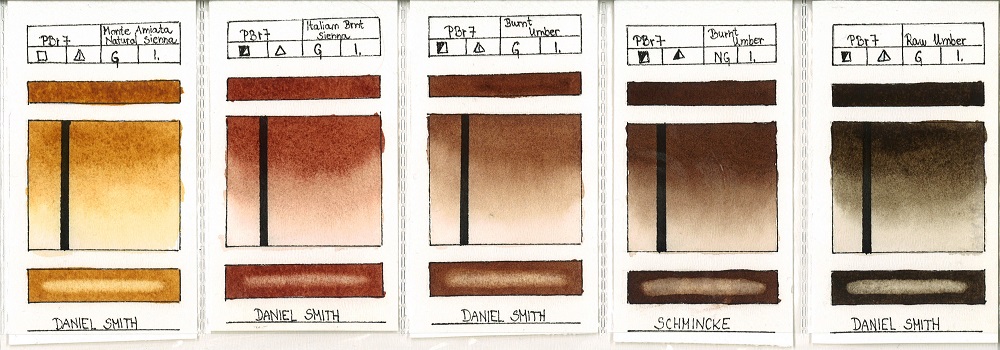 PBr7
Monte Amiata
Natural Sienna
G
1.
DANIEL SMITH
PBr7
Italian Brnt
Sienna
G
1.
DANIEL SMITH
PBr7
Burnt
Umber
G
1.
DANIEL SMITH
PBr7
Burnt
Umber
NG
1.
SCHMINCKE
PBr7
Raw Umber
G
1.
DANIEL SMITH